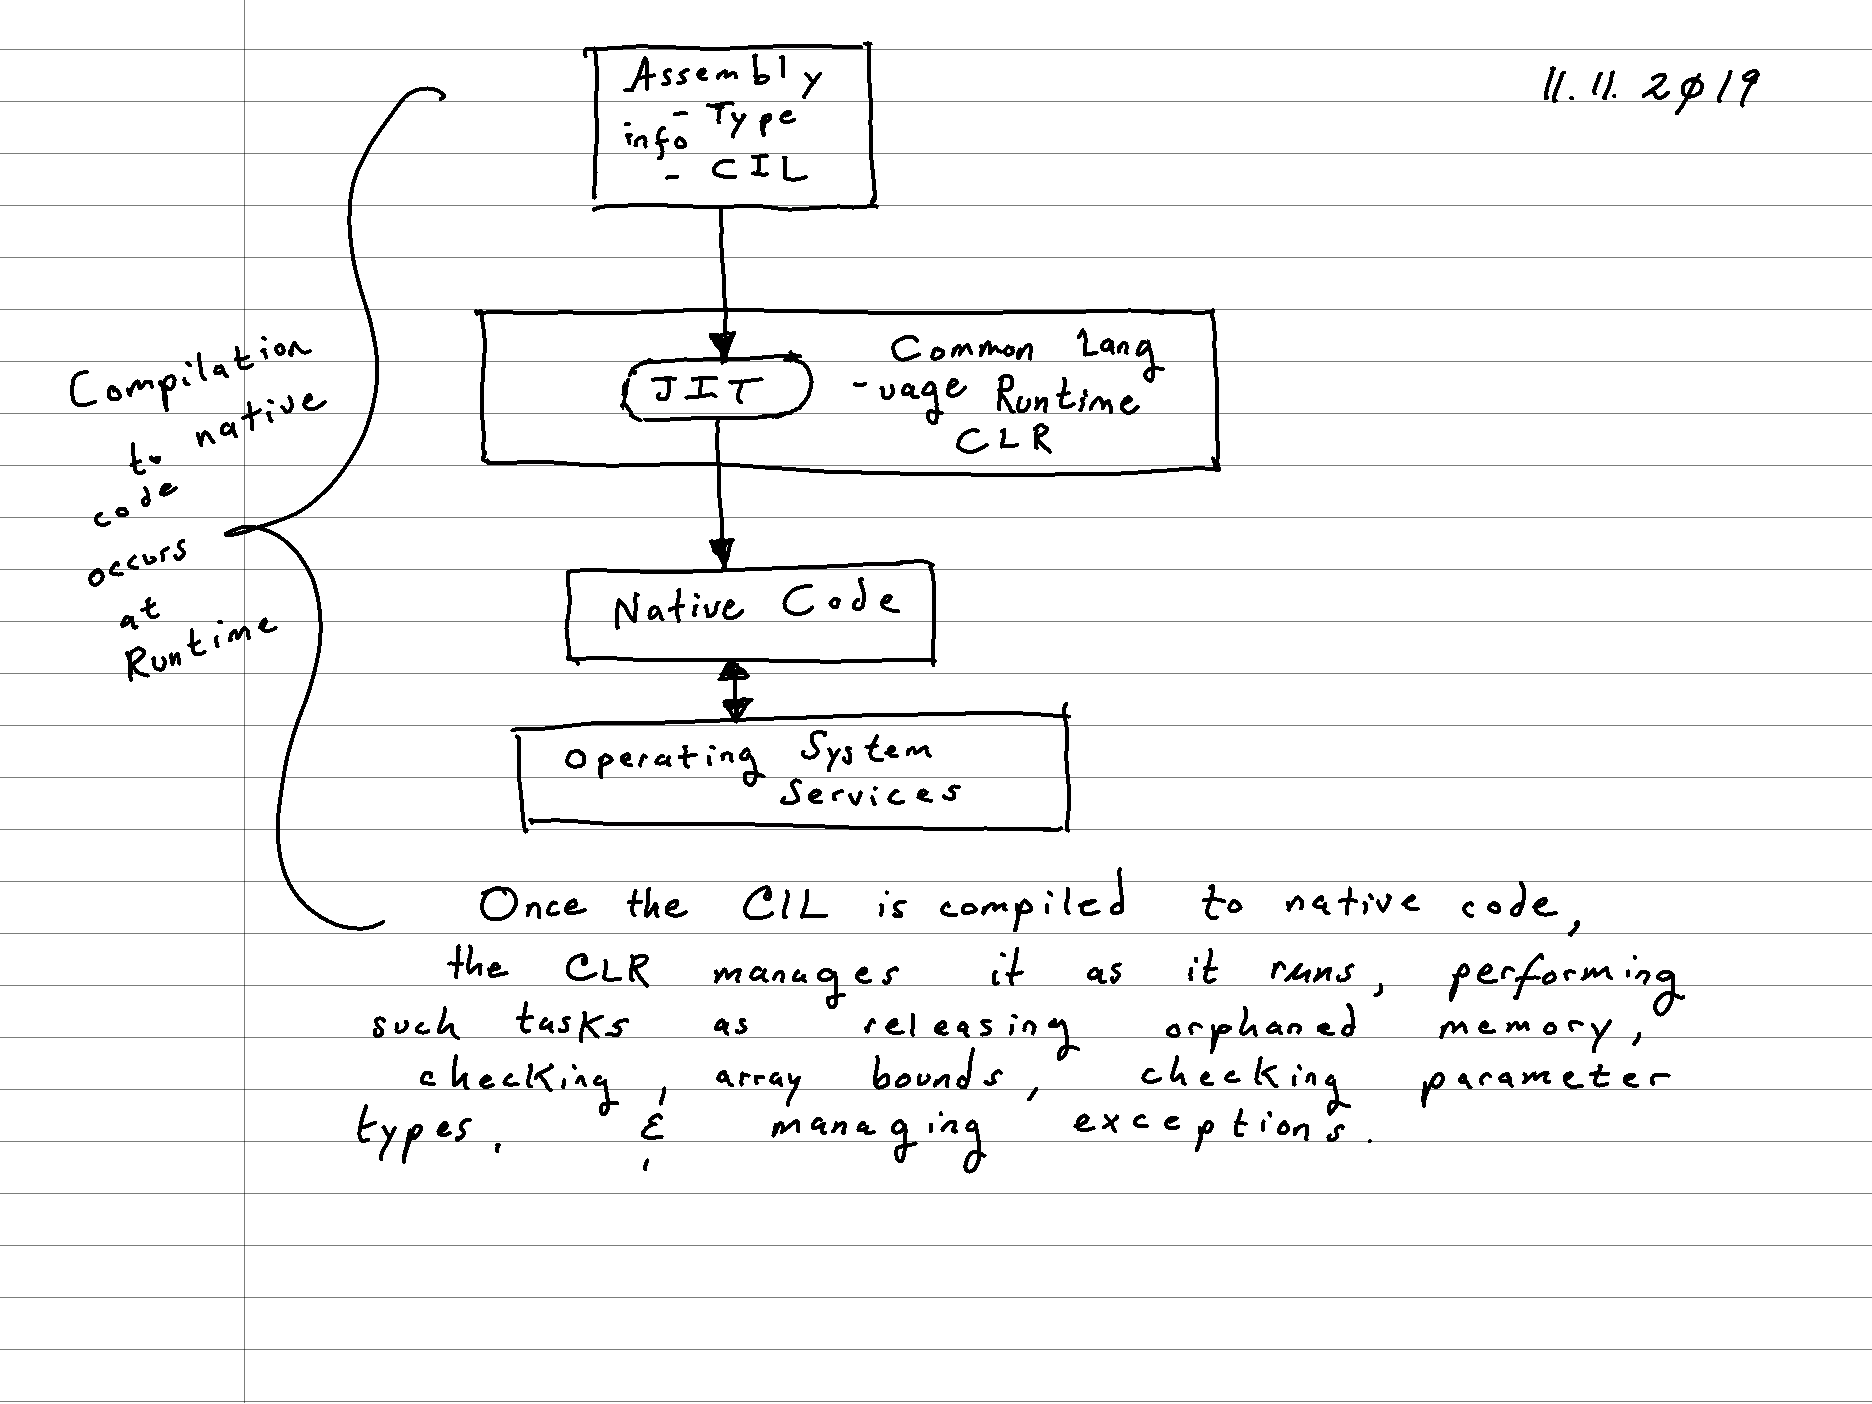 11.11.2019
Assembly
- Type
info
- CIL
JIT
Common Lang
-uage Runtime
CLR
Native Code
Operating System
Services
Compilation
to native
code
occurs
at
Runtime
Once the CIL is compiled to native code,
the CLR manages it as it runs, performing
such tasks as releasing orphaned memory,
checking, array bounds, checking parameter
types, & managing exceptions.